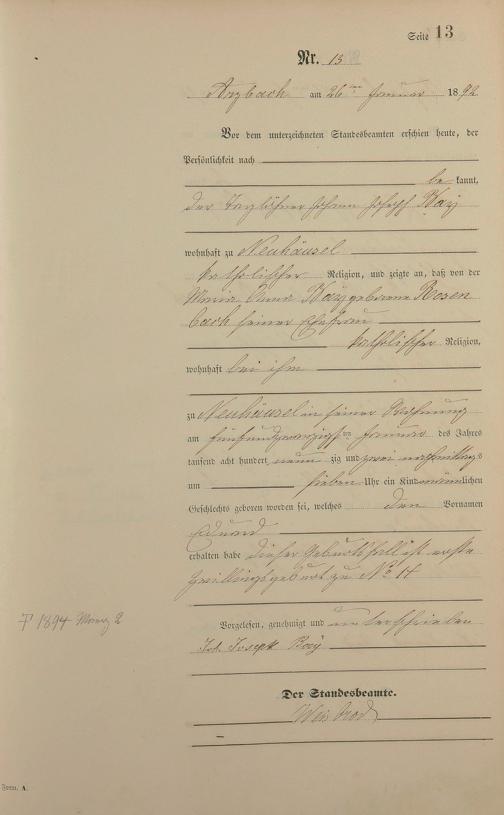 Seite 13
Nr. 13
Arzbach am 26ten Januar 1892
Vor dem unterzeichneten Standesbeamten erschien heute, der
Persönlichkeit nach
be kannt,
der Taglöhner Johann Joseph Kay
wohnhaft zu Neuhäusel
katholischer Religion, und zeigte an, daß von der
Maria Anna Kay geborene Rosen
bach seiner Ehefrau
katholischer Religion,
wohnhaft bei ihm
zu Neuhäusel in seiner Wohnung
am fünfundzwanzigsten Januar des Jahres
tausend acht hundert neun zig und zwei nachmittags
um sieben Uhr ein Kind männlichen
Geschlechts geboren worden sei, welches den Vornamen
Eduard
erhalten habe dieser Geburtsfall ist erste
Zwillingsgeburt zu No 14
Vorgelesen, genehmigt und unterschrieben
† 1894 März 2
Joh. Joseph Kay
Der Standesbeamte.
Weisbrod
Form. A.